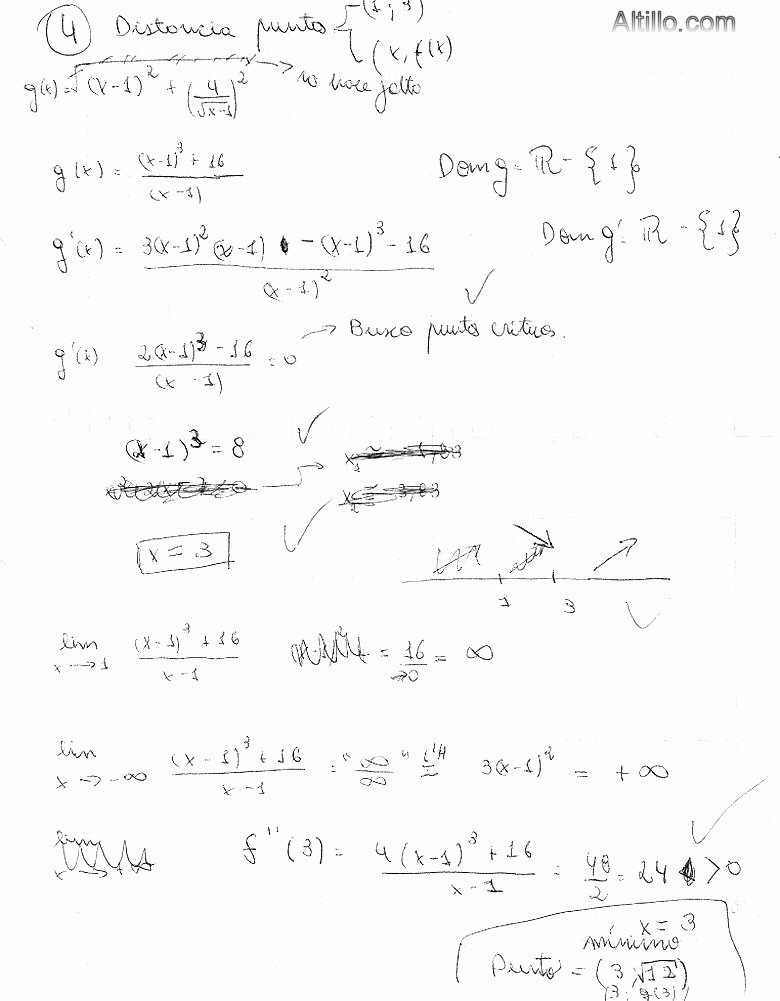 Altillo.com
④ Distancia punto { (1 ; 3)
(x, f(x)
g(x) = √(x-1)² + (4/√x-1)² → no hace falta
g(x) = (x-1)³ + 16 / (x-1) Dom g = ℝ - {1}
g'(x) = 3(x-1)² (x-1) - (x-1)³ - 16 / (x-1)² Dom g' : ℝ - {1}
✓
g'(x) 2(x-1)³ - 16 / (x-1) = 0 → Busco puntos críticos.
(x-1)³ = 8 ✓
x = 3 ✓
1 3 ✓
lim x→1 (x-1)³ + 16 / x-1 = 16 / →0 = ∞
lim x→-∞ (x-1)³ + 16 / x-1 = "∞/∞" L'H = 3(x-1)² = +∞
lim x→ f''(3) = 4(x-1)³ + 16 / x-1 = 48/2 = 24 > 0 ✓
x = 3
mínimo
Punto = (3 √12)
(3, g(3))